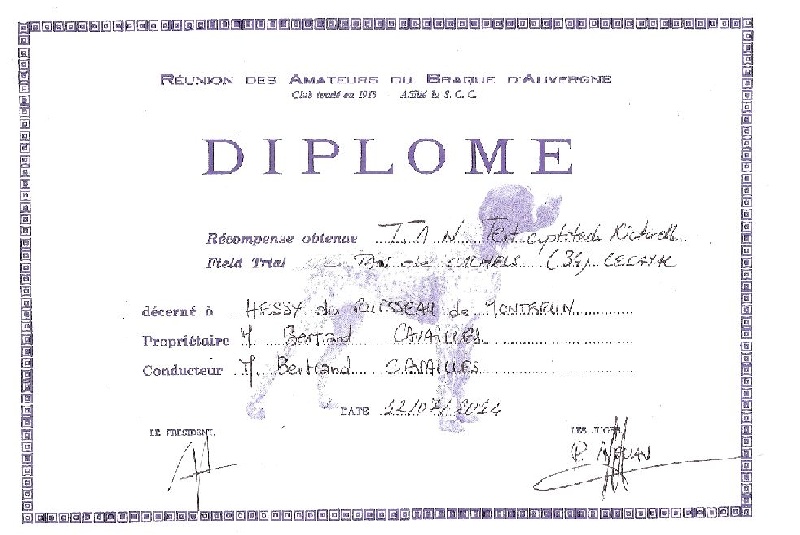 RÉUNION DES AMATEURS DU BRAQUE D'AUVERGNE
Club fondé en 1913 - Affilié à S. C. C.
DIPLOME
Récompense obtenue T.A.N Test
Field Trial de (34)
décerné à HESSY du RUISSEAU de MONTBRUN
Propriétaire M. Bertrand CAVAILLES
Conducteur M. Bertrand CAVAILLES
DATE 12/07/2014
LE PRÉSIDENT,
LES JUGES,